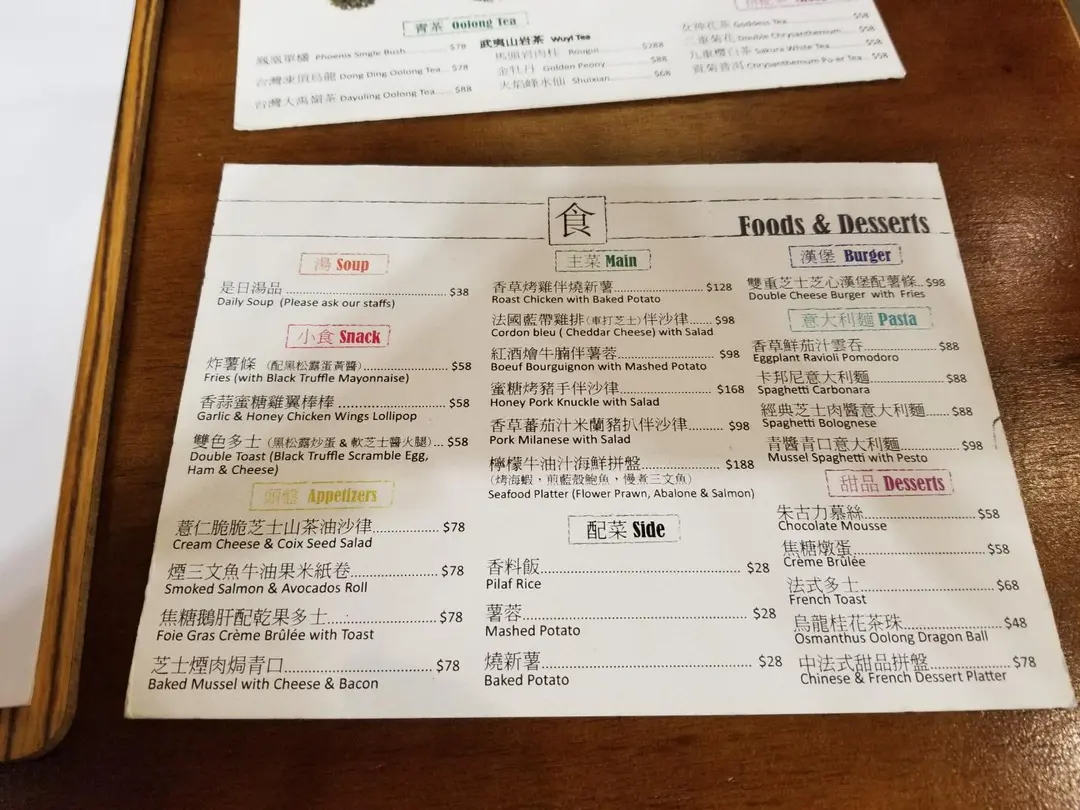 青茶 Oolong Tea
鳳凰單欉 Phoenix Single Bush $78
台灣凍頂烏龍 Dong Ding Oolong Tea... $78
台灣大禹嶺茶 Dayuling Oolong Tea..... $88
武夷山岩茶 Wuyi Tea
馬頭岩肉桂 Rougui $288
金牡丹 Golden Peony $88
大焰峰水仙 Shuixian $68
$58
女神花茶 Goddess Tea $58
二重菊花 Double Chrysanthemum $58
九重櫻白茶 Sakura White Tea $58
貢菊普洱 Chrysanthemum Pu-er Tea $58
食
Foods & Desserts
湯 Soup
是日湯品 $38
Daily Soup (Please ask our staffs)
小食 Snack
炸薯條 (配黑松露蛋黃醬) $58
Fries (with Black Truffle Mayonnaise)
香蒜蜜糖雞翼棒棒 $58
Garlic & Honey Chicken Wings Lollipop
雙色多士 (黑松露炒蛋 & 軟芝士醬火腿)... $58
Double Toast (Black Truffle Scramble Egg,
Ham & Cheese)
頭盤 Appetizers
薏仁脆脆芝士山茶油沙律 $78
Cream Cheese & Coix Seed Salad
煙三文魚牛油果米紙卷 $78
Smoked Salmon & Avocados Roll
焦糖鵝肝配乾果多士 $78
Foie Gras Crème Brûlée with Toast
芝士煙肉焗青口 $78
Baked Mussel with Cheese & Bacon
主菜 Main
香草烤雞伴燒新薯 $128
Roast Chicken with Baked Potato
法國藍帶雞排(車打芝士)伴沙律 $98
Cordon bleu ( Cheddar Cheese) with Salad
紅酒燴牛腩伴薯蓉 $98
Boeuf Bourguignon with Mashed Potato
蜜糖烤豬手伴沙律 $168
Honey Pork Knuckle with Salad
香草蕃茄汁米蘭豬扒伴沙律 $98
Pork Milanese with Salad
檸檬牛油汁海鮮拼盤 $188
(烤海蝦，煎藍殼鮑魚，慢煮三文魚)
Seafood Platter (Flower Prawn, Abalone & Salmon)
配菜 Side
香料飯 $28
Pilaf Rice
薯蓉 $28
Mashed Potato
燒新薯 $28
Baked Potato
漢堡 Burger
雙重芝士芝心漢堡配薯條.. $98
Double Cheese Burger with Fries
意大利麵 Pasta
香草鮮茄汁雲吞 $88
Eggplant Ravioli Pomodoro
卡邦尼意大利麵 $88
Spaghetti Carbonara
經典芝士肉醬意大利麵 $88
Spaghetti Bolognese
青醬青口意大利麵 $98
Mussel Spaghetti with Pesto
甜品 Desserts
朱古力慕絲 $58
Chocolate Mousse
焦糖燉蛋 $58
Crème Brûlée
法式多士 $68
French Toast
烏龍桂花茶珠 $48
Osmanthus Oolong Dragon Ball
中法式甜品拼盤 $78
Chinese & French Dessert Platter